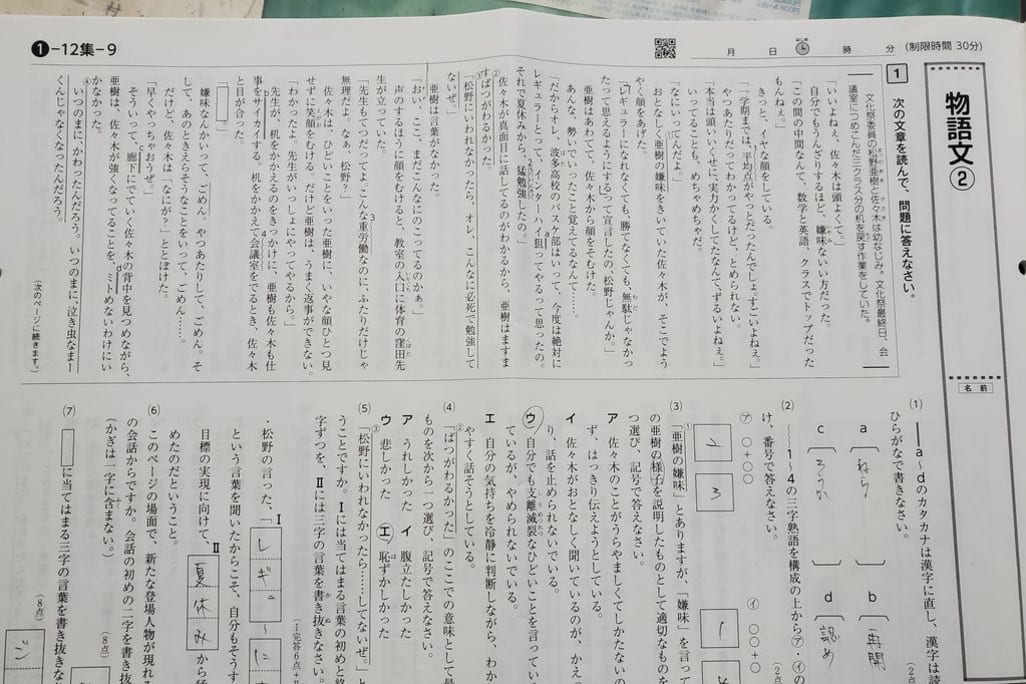 ❶-12集-9
月 日 時 分 (制限時間 30分)
物語文②
名前
1 次の文章を読んで、問題に答えなさい。
文化祭委員の松野亜樹と佐々木は幼なじみ。文化祭最終日、会
議室につめこんだ三クラス分の机を戻す作業をしていた。
「いいよねぇ、佐々木は頭よくて。」
自分でもうんざりするほど、嫌味ないい方だった。
「この間の中間なんて、数学と英語、クラスでトップだった
もんねぇ。」
きっと、イヤな顔をしている。
「一学期までは、平均点がやっとだったんでしょ。すごいよねぇ。」
やつあたりだってわかってるけど、とめられない。
「本当は頭いいくせに、実力かくしてたなんて、ずるいよねぇ。」
いってることも、めちゃめちゃだ。
「なにいってんだよ。」
おとなしく亜樹の嫌味をきいていた佐々木が、そこでよう
やく顔をあげた。
「レギュラーになれなくても、勝てなくても、無駄じゃなかっ
たって思えるようにするって宣言したの、松野じゃんか。」
亜樹はあわてて、佐々木から顔をそむけた。
あんな、勢いでいったこと覚えてるなんて……。
「だからオレ、波多高校のバスケ部はいって、今度は絶対に
レギュラーとって、インターハイ狙ってやるって思ったの。
それで夏休みから、猛勉強したの。」
佐々木が真面目に話してるのがわかるから、亜樹はますま
②すばつがわるかった。
③「松野にいわれなかったら、オレ、こんなに必死で勉強して
ないぜ。」
亜樹は言葉がなかった。
「おい、ここ、まだこんなにのこってるのかぁ。」
声のするほうに顔をむけると、教室の入口に体育の窪田先
生が立っていた。
「先生もてつだってよ。こんな重労働なのに、ふたりだけじゃ
無理だよ。なぁ、松野?」
佐々木は、ひどいことをいった亜樹に、いやな顔ひとつ見
せずに笑顔をむける。だけど亜樹は、うまく返事ができない。
「わかったよ。先生がいっしょにやってやるから。」
先生が、机をかかえるのをきっかけに、亜樹も佐々木も仕
事をサイカイする。机をかかえて会議室をでるとき、佐々木
と目が合った。
「
嫌味なんかいって、ごめん。やつあたりして、ごめん。そ
して、あのときえらそうなことをいって、ごめん……。
だけど、佐々木は「なにが?」ととぼけた。
「早くやっちゃおうぜ。」
そういって、廊下にでていく佐々木の背中を見つめながら、
亜樹は、佐々木が強くなってることを、ミトめないわけにい
かなかった。
④いつのまに、かわったんだろう。いつのまに、泣き虫なまー
くんじゃなくなったんだろう。
(次のページに続きます。)
(1) ――a~dのカタカナは漢字に直し、漢字は読
ひらがなで書きなさい。
a ねら
b 再開
c ろうか
d 認め
(2) ～～～1~4の三字熟語を構成の上から㋐・㋑の
け、番号で答えなさい。
㋐ ○+○○
㋑ ○○+○
2 3
1
(3) 「亜樹の嫌味」とありますが、「嫌味」を言って
の亜樹の様子を説明したものとして適切なものを
つ選び、記号で答えなさい。
ア 佐々木のことがうらやましくてしかたないの
ず、はっきり伝えようとしている。
イ 佐々木がおとなしく聞いているのが、かえっ
り、話を止められないでいる。
ウ 自分でも支離滅裂なひどいことを言ってい
ているが、やめられないでいる。
エ 自分の気持ちを冷静に判断しながら、わか
やすく話そうとしている。
(4) 「ばつがわるかった」のここでの意味として最
ものを次から一つ選び、記号で答えなさい。
ア うれしかった イ 腹立たしかった
ウ 悲しかった エ 恥ずかしかった
(5) 「松野にいわれなかったら……してないぜ。」
うことですか。Ⅰには当てはまる言葉の初めと終
字ずつを、Ⅱには三字の言葉を書き抜きなさい。
・松野の言った、「Ⅰ レギュ～に
という言葉を聞いたからこそ、自分もそうす
目標の実現に向けて、Ⅱ 夏休み から猛
めたのだということ。
(6) このページの場面で、新たな登場人物が現れ
の会話からですか。会話の初めの二字を書き
(かぎは一字に含まない。)
(8点)
(7) に当てはまる三字の言葉を書き抜きな
(8点)